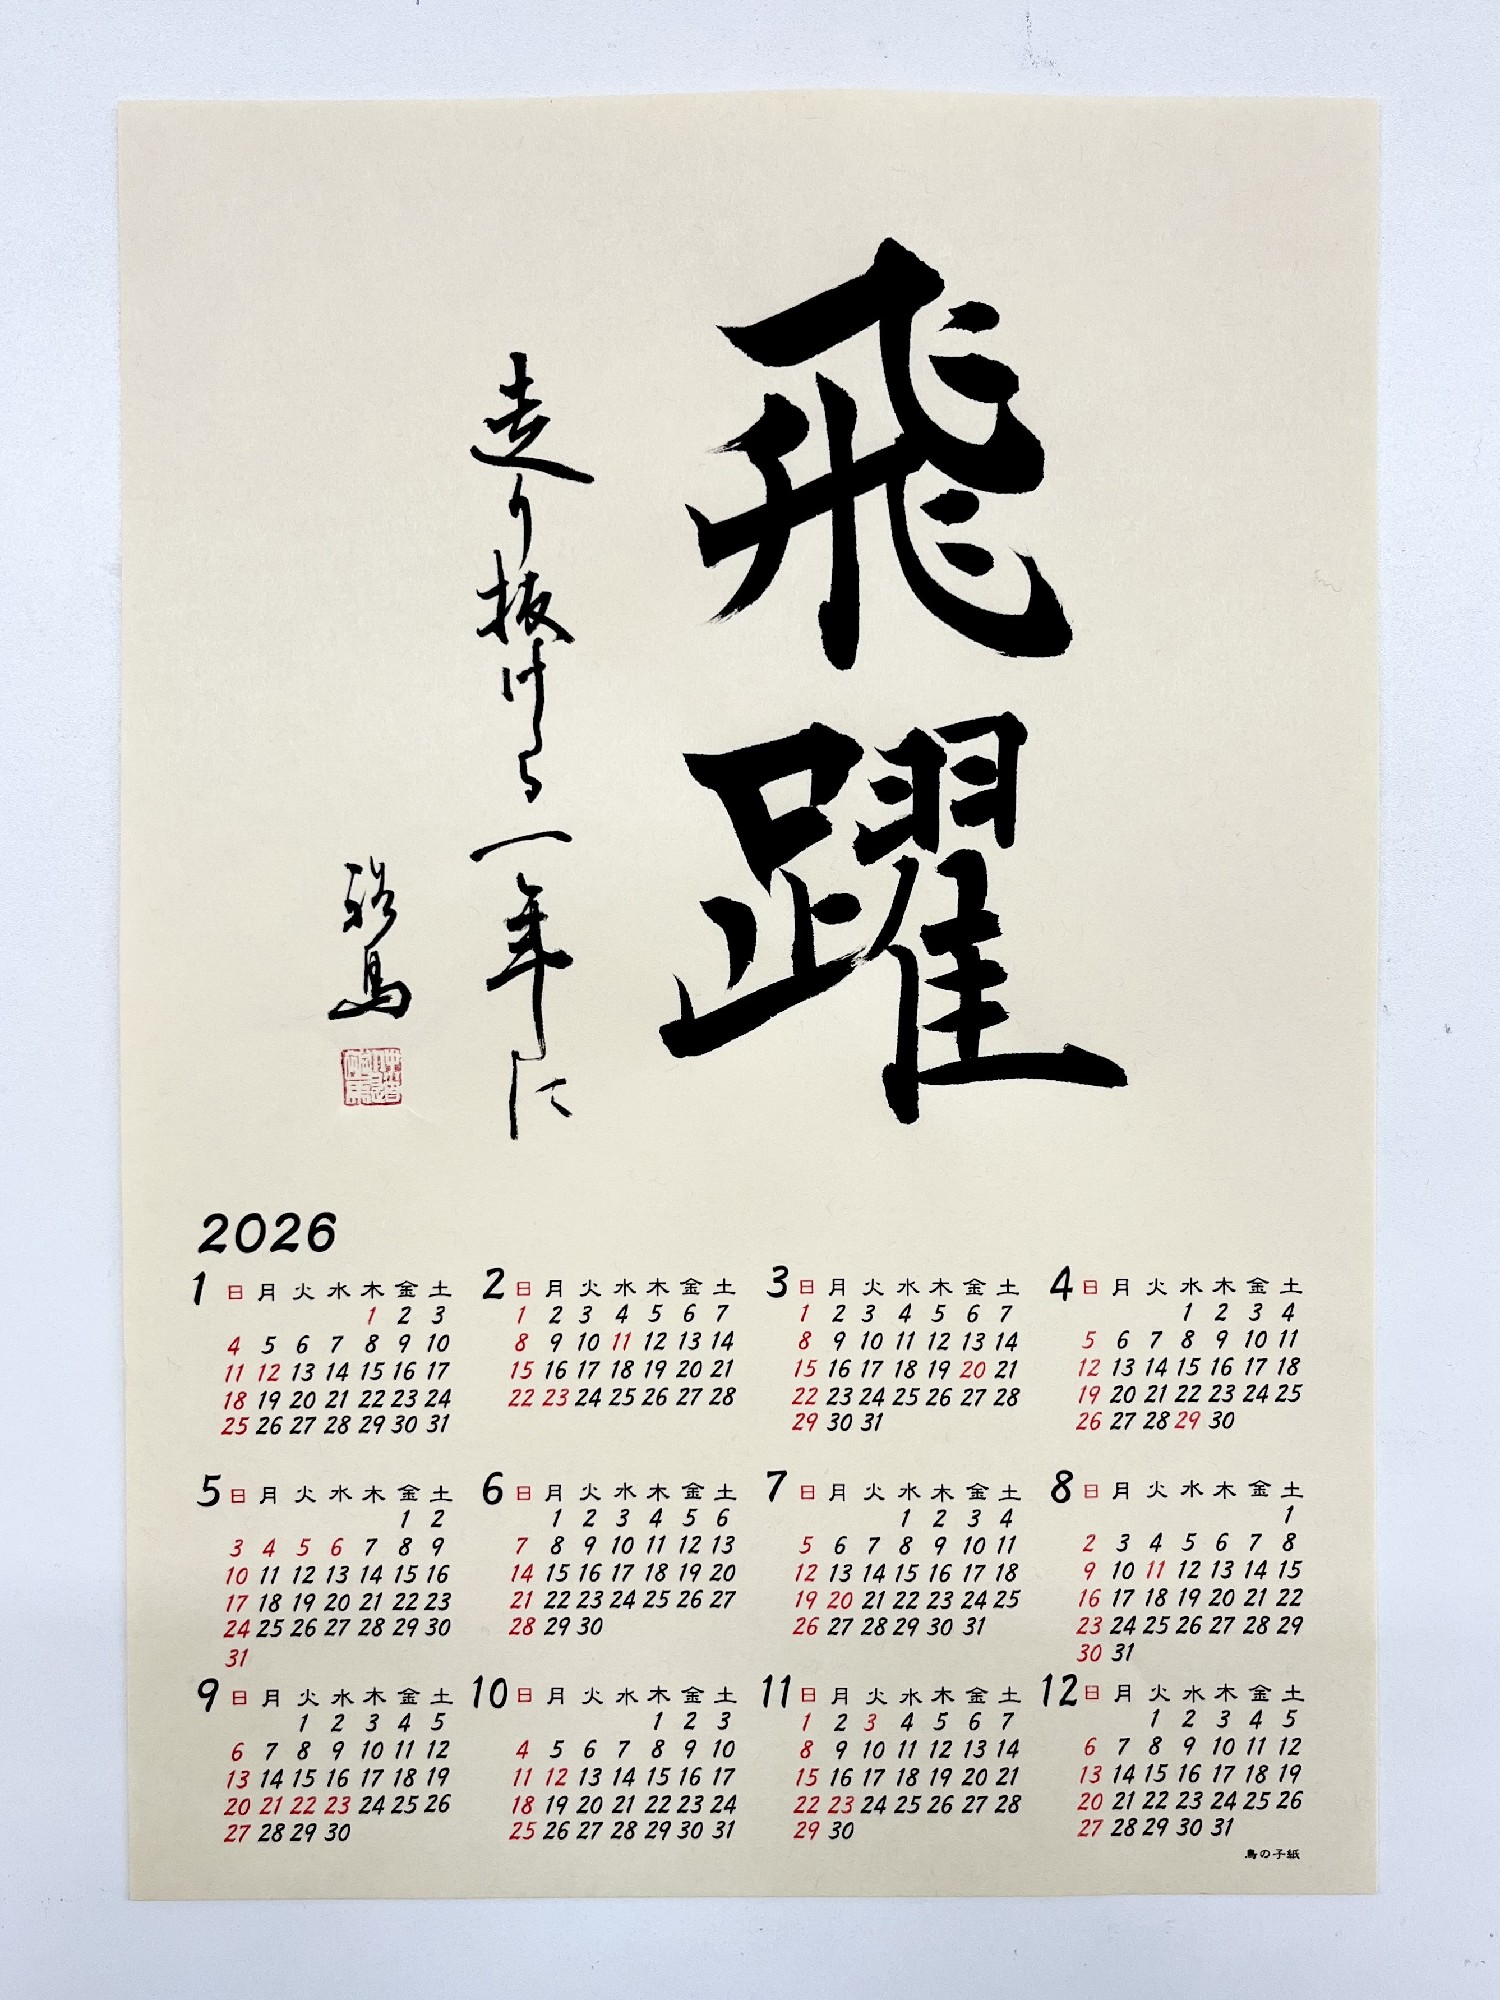 飛躍
走り抜ける一年に
2026
1 日 月 火 水 木 金 土
1 2 3
4 5 6 7 8 9 10
11 12 13 14 15 16 17
18 19 20 21 22 23 24
25 26 27 28 29 30 31
2 日 月 火 水 木 金 土
1 2 3 4 5 6 7
8 9 10 11 12 13 14
15 16 17 18 19 20 21
22 23 24 25 26 27 28
3 日 月 火 水 木 金 土
1 2 3 4 5 6 7
8 9 10 11 12 13 14
15 16 17 18 19 20 21
22 23 24 25 26 27 28
29 30 31
4 日 月 火 水 木 金 土
1 2 3 4
5 6 7 8 9 10 11
12 13 14 15 16 17 18
19 20 21 22 23 24 25
26 27 28 29 30
5 日 月 火 水 木 金 土
1 2
3 4 5 6 7 8 9
10 11 12 13 14 15 16
17 18 19 20 21 22 23
24 25 26 27 28 29 30
31
6 日 月 火 水 木 金 土
1 2 3 4 5 6
7 8 9 10 11 12 13
14 15 16 17 18 19 20
21 22 23 24 25 26 27
28 29 30
7 日 月 火 水 木 金 土
1 2 3 4
5 6 7 8 9 10 11
12 13 14 15 16 17 18
19 20 21 22 23 24 25
26 27 28 29 30 31
8 日 月 火 水 木 金 土
1
2 3 4 5 6 7 8
9 10 11 12 13 14 15
16 17 18 19 20 21 22
23 24 25 26 27 28 29
30 31
9 日 月 火 水 木 金 土
1 2 3 4 5
6 7 8 9 10 11 12
13 14 15 16 17 18 19
20 21 22 23 24 25 26
27 28 29 30
10 日 月 火 水 木 金 土
1 2 3
4 5 6 7 8 9 10
11 12 13 14 15 16 17
18 19 20 21 22 23 24
25 26 27 28 29 30 31
11 日 月 火 水 木 金 土
1 2 3 4 5 6 7
8 9 10 11 12 13 14
15 16 17 18 19 20 21
22 23 24 25 26 27 28
29 30
12 日 月 火 水 木 金 土
1 2 3 4 5
6 7 8 9 10 11 12
13 14 15 16 17 18 19
20 21 22 23 24 25 26
27 28 29 30 31
鳥の子紙